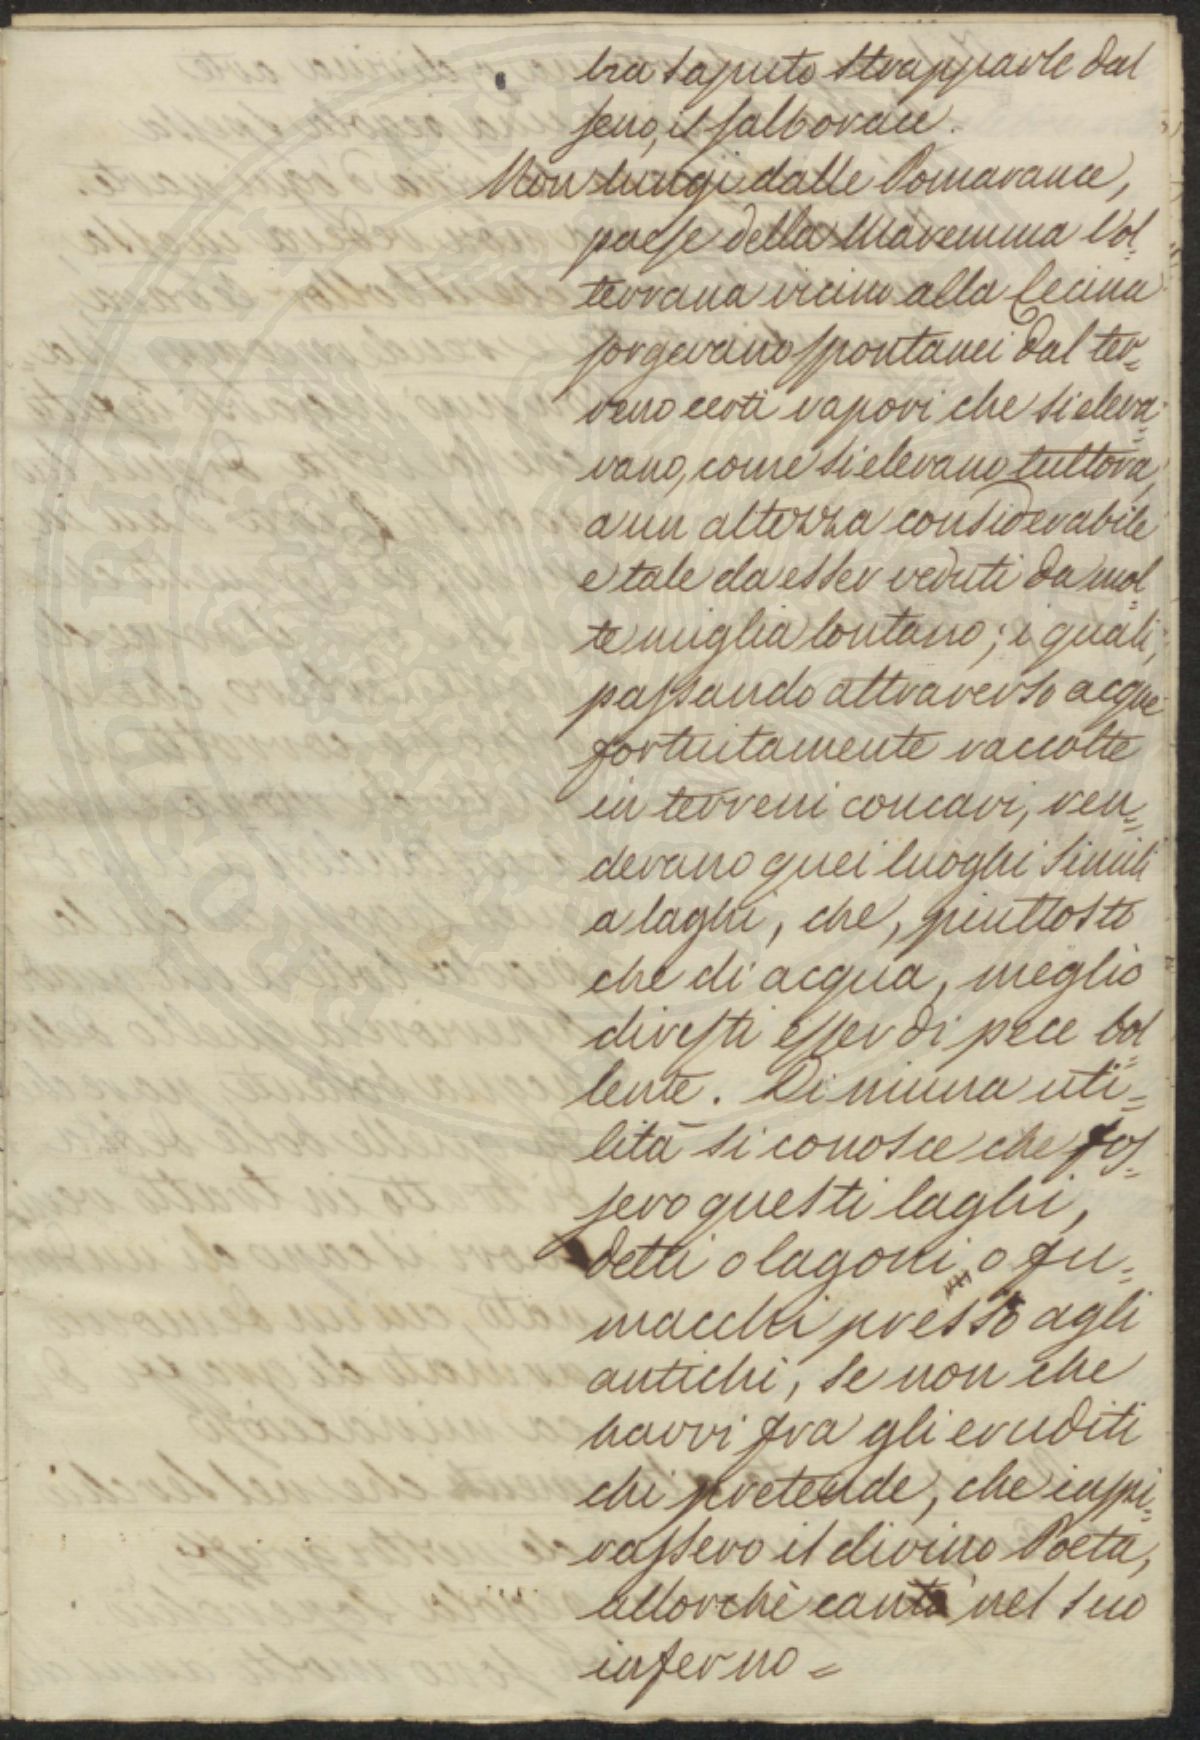 bra saputo strapparle dal
seno, il salborace.
Non lungi dalle Pomarance,
paese della Maremma Vol=
terrana vicino alla Cecina
sorgevano spontanei dal ter=
reno certi vapori che si eleva=
vano, come si elevano tuttora,
a un altezza considerabile
e tale da esser veduti da mol=
te miglia lontano; i quali,
passando attraverso acque
fortuitamente raccolte
in terreni concavi, ren=
devano quei luoghi simili
a laghi, che, piuttosto
che di acqua, meglio
diresti esser di pece bol=
lente. Di niuna uti=
lità si conosce che fos=
sero questi laghi,
detti o lagoni o fu=
macchi presso agli
antichi, se non che
havvi fra gli eruditi
chi pretende, che inspi=
rassero il divino Poeta,
allorchè cantò nel suo
inferno =